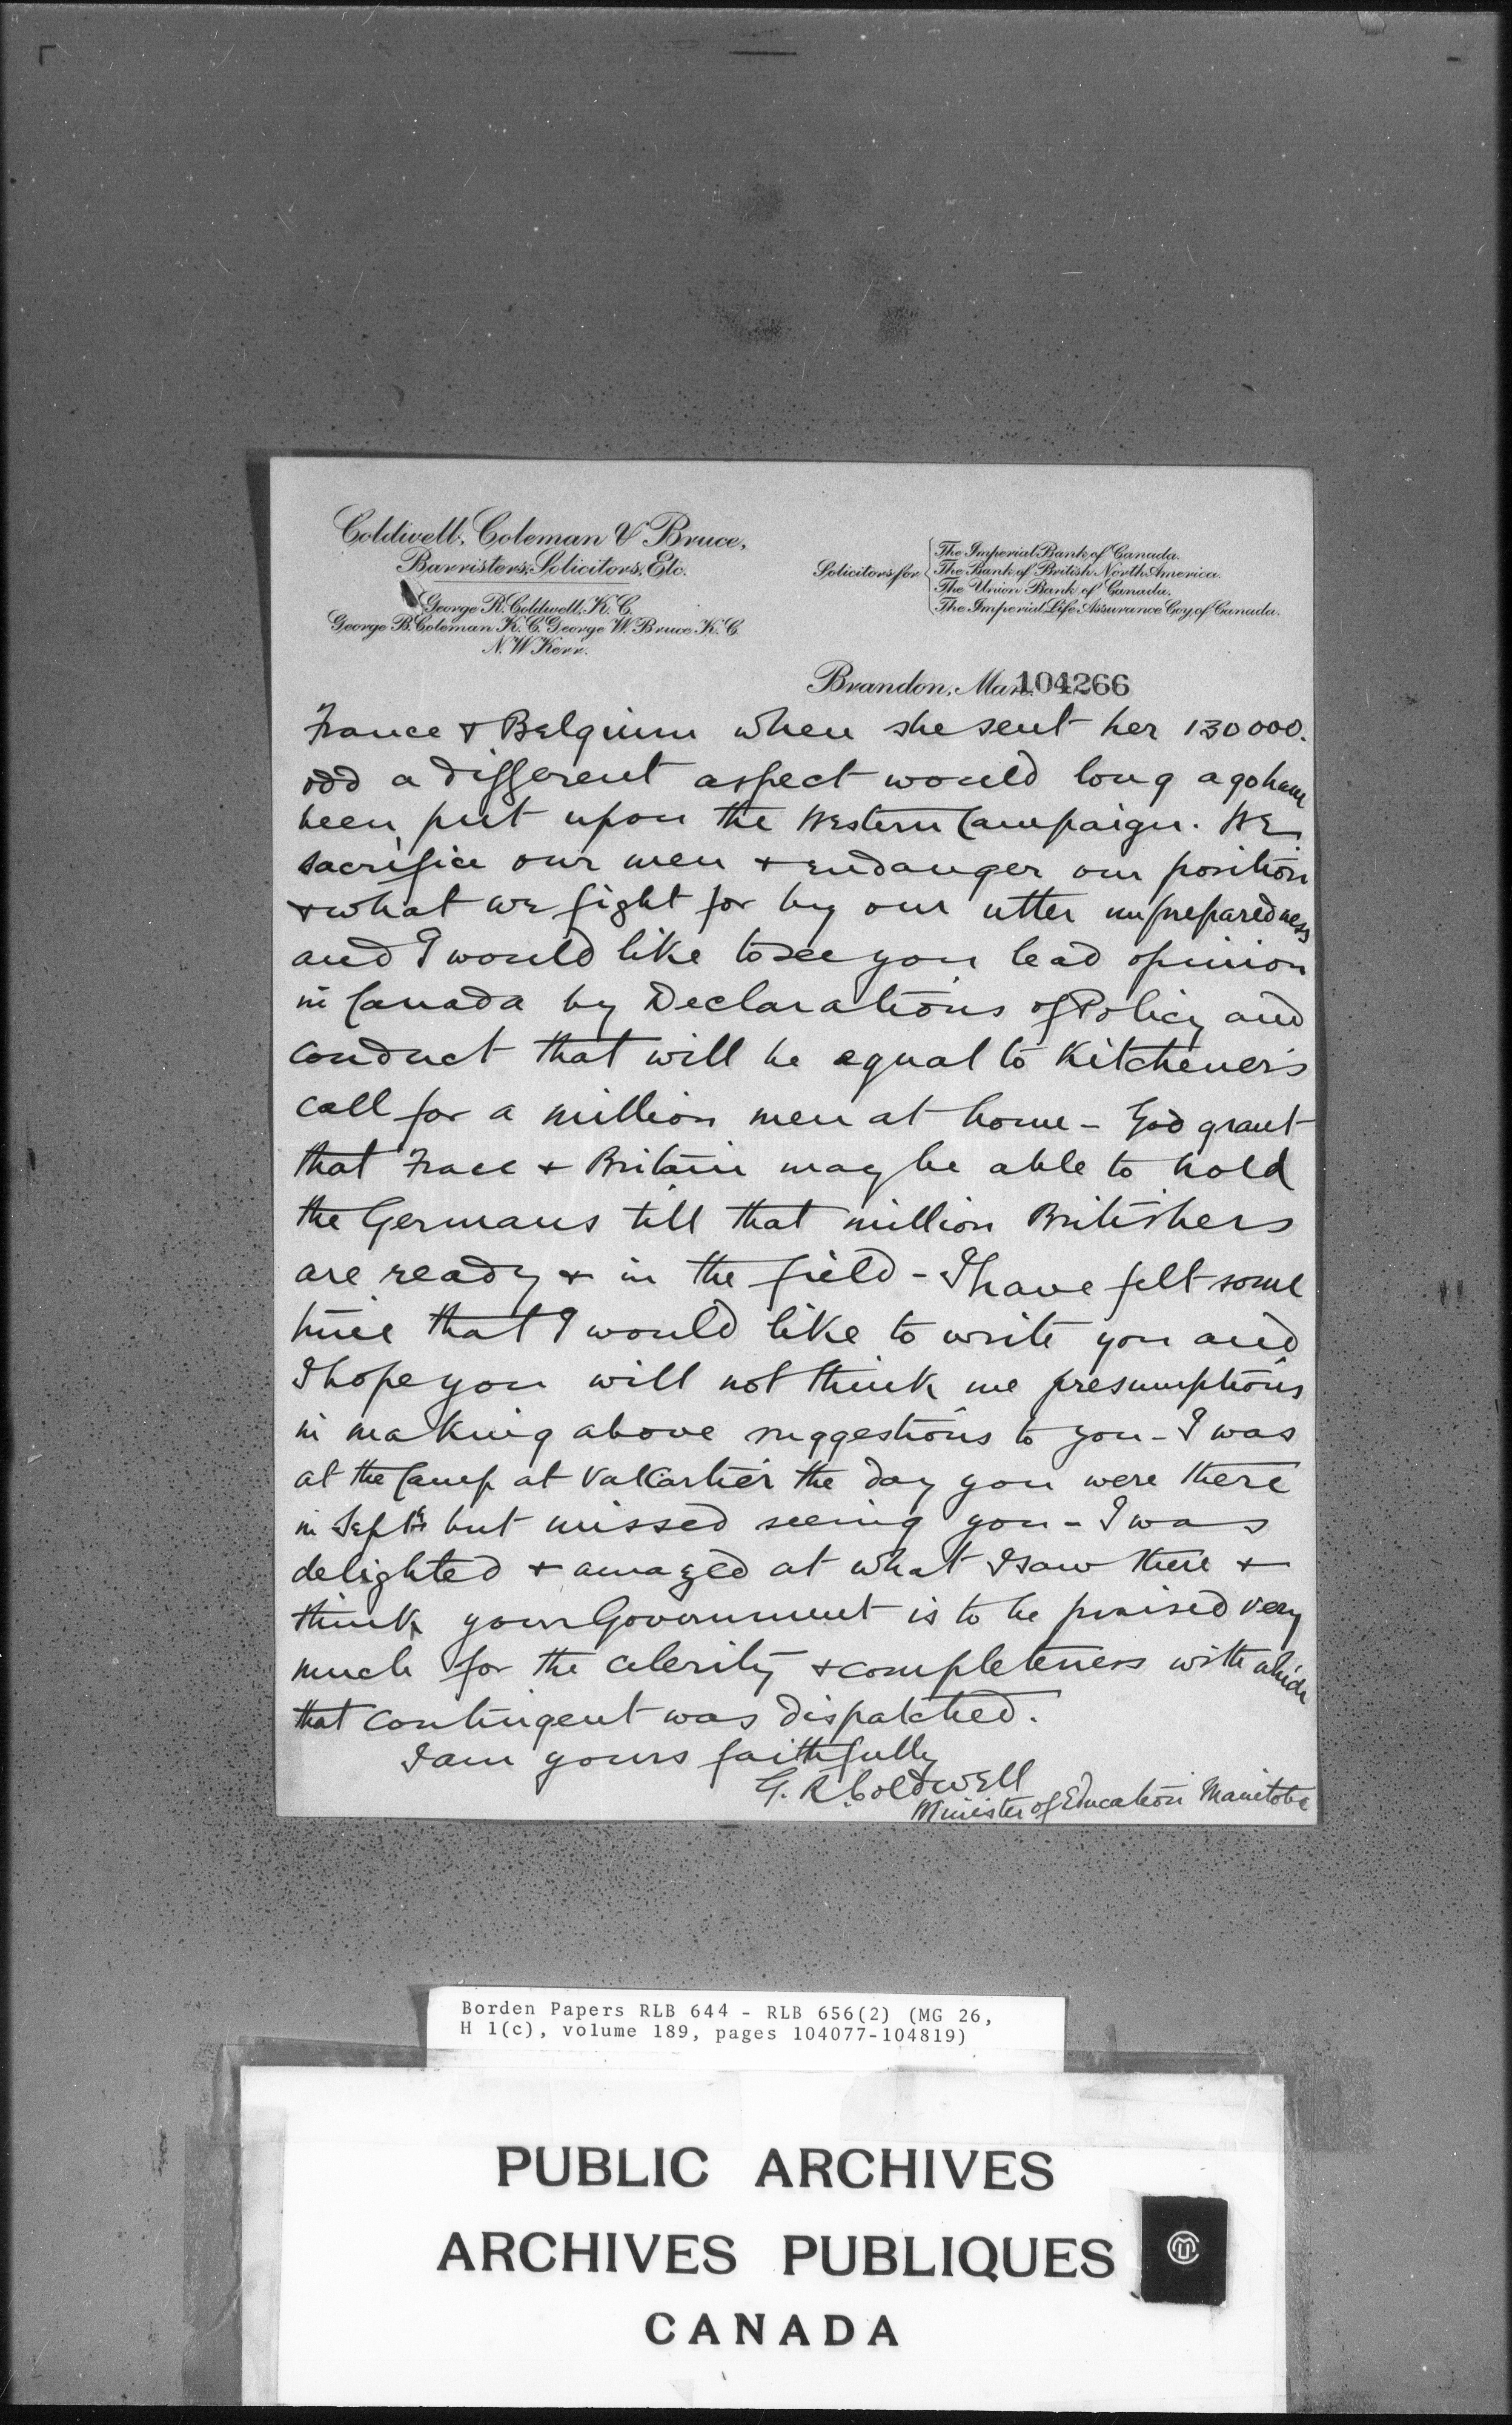 Coldwell, Coleman & Bruce,
Barristers, Solicitors, Etc.
George R. Coldwell, K.C.
George B. Coleman K.C. George W. Bruce K.C.
N. W. Kerr.
Solicitors for
The Imperial Bank of Canada.
The Bank of British North America.
The Union Bank of Canada.
The Imperial Life Assurance Coy of Canada.
Brandon, Man. 104266
France & Belgium when she sent her 130000.
odd a different aspect would long ago have
been put upon the Western Campaign. We
sacrifice our men & endanger our position
& what we fight for by our utter unpreparedness
and I would like to see you lead opinion
in Canada by Declarations of Policy and
conduct that will be equal to Kitchener's
call for a million men at home - God grant
that Frace & Britain may be able to hold
the Germans till that million Britishers
are ready & in the field - I have felt some
time that I would like to write you and
I hope you will not think me presumptious
in making above suggestions to you - I was
at the Camp at Valcartier the day you were there
in Sept but missed seeing you - I was
delighted & amazed at what I saw there &
think your Government is to be praised very
much for the celerity & completeness with which
that contingent was dispatched.
I am yours faithfully
G. R. Coldwell
Minister of Education Manitoba
Borden Papers RLB 644 - RLB 656(2) (MG 26,
H 1(c), volume 189, pages 104077-104819)
PUBLIC ARCHIVES
ARCHIVES PUBLIQUES
CANADA